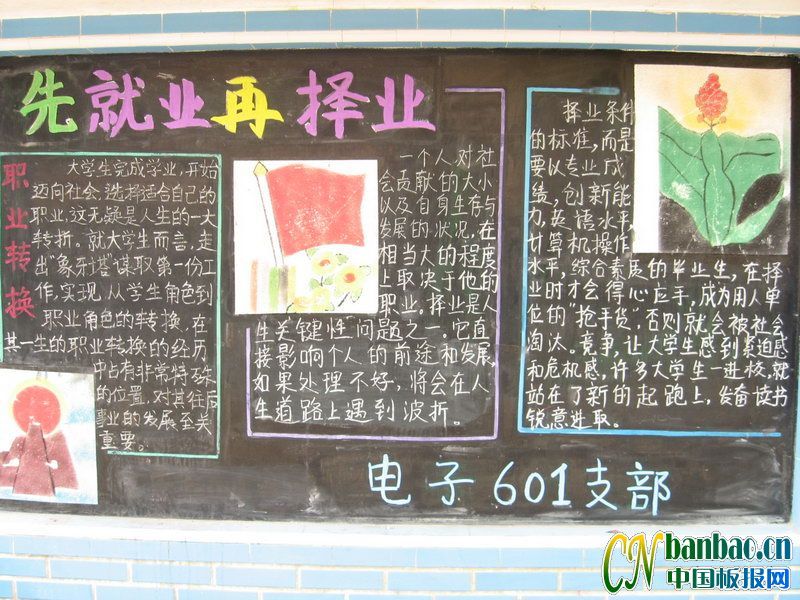 先就业再择业
职业转换
大学生完成学业,开始
迈向社会,选择适合自己的
职业,这无疑是人生的一大
转折。就大学生而言,走
出"象牙塔"谋取第一份工
作,实现从学生角色到
职业角色的转换,在
其一生的职业转换的经历
中占有非常特殊
的位置,对其往后
事业的发展至关
重要。
一个人对社
会贡献的大小
以及自身生存与
发展的状况,在
相当大的程度
上取决于他的
职业。择业是人
生关键性问题之一。它直
接影响个人的前途和发展,
如果处理不好,将会在人
生道路上遇到波折。
择业条件
的标准,而是
要以专业成
绩,创新能
力,英语水平,
计算机操作
水平,综合素质的毕业生,在择
业时才会得心应手,成为用人单
位的"抢手货",否则就会被社会
淘汰。竞争,让大学生感到紧迫感
和危机感,许多大学生一进校,就
站在了新的起跑上,发奋读书
锐意进取。
电子601支部
CN banbao.cn
中国板报网